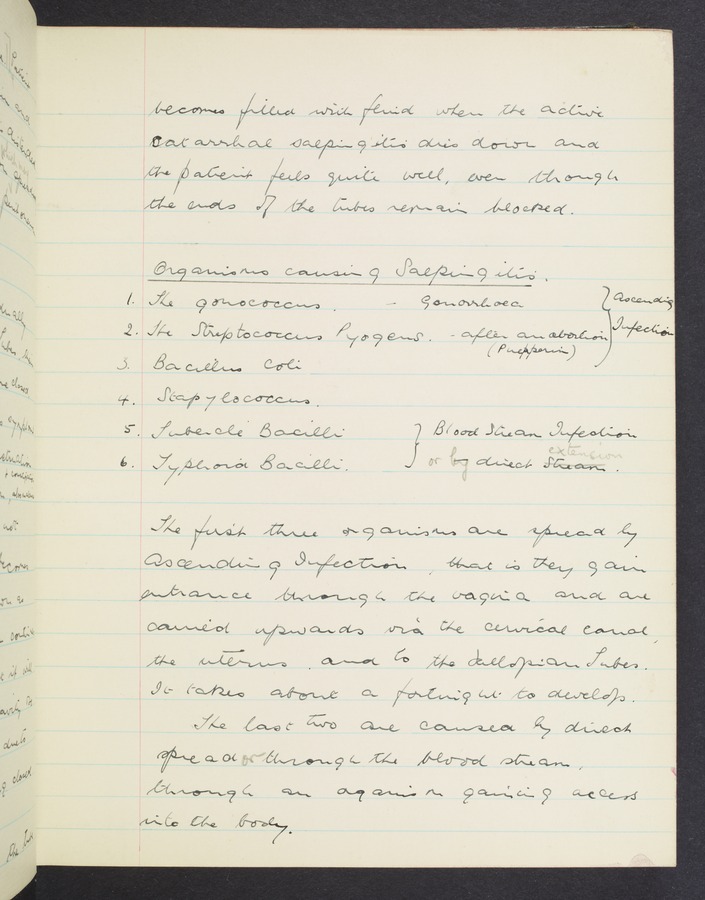 becomes filled with fluid when the active
catarrhal salpingitis dies down and
the patient feels quite well, even though
the ends of the tubes remain blocked.
Organisms causing Salpingitis.
1. The gonococcus. - Gonorrhoea } Ascending
2. The Streptococcus Pyogens. - after an abortion Infection
(Puepperium)
3. Bacillus Coli
4. Stapylococcus.
5. Tubercle Bacilli } Blood Stream Infection
extension
6. Typhoid Bacilli. or by direct Stream.
The first three organisms are spread by
Ascending Infection, that is they gain
entrance through the vagina and are
carried upwards via the cervical canal,
the uterus, and to the Fallopian Tubes.
It takes about a fortnight to develop.
The last two are caused by direct
spread or through the blood stream,
through an organism gaining access
into the body.